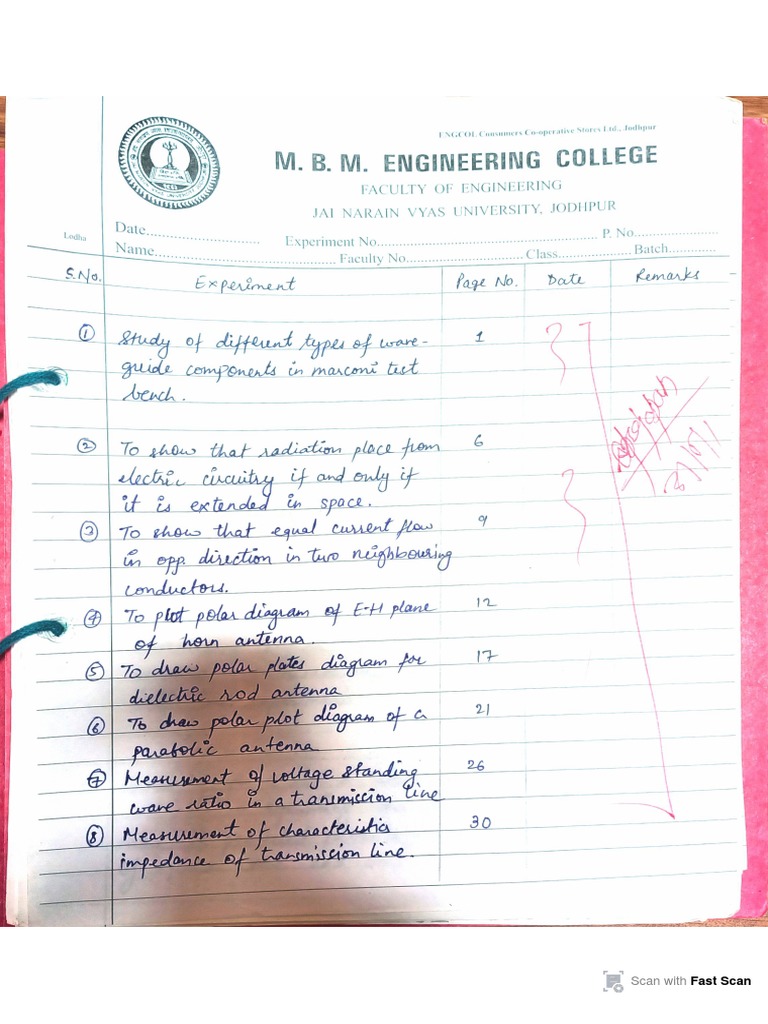 ENGCOL Consumers Co-operative Stores Ltd., Jodhpur
M. B. M. ENGINEERING COLLEGE
FACULTY OF ENGINEERING
JAI NARAIN VYAS UNIVERSITY, JODHPUR
Lodha
Date............................ Experiment No........................................................ P. No.....................
Name.................................................... Faculty No............................. Class.................. Batch............
S.No. Experiment Page No. Date Remarks
① Study of different types of wave- 1
guide components in marconi test
bench.
② To show that radiation place from 6
electric circuitry if and only if
it is extended in space.
③ To show that equal current flow 9
in opp. direction in two neighbouring
conductors.
④ To plot polar diagram of E-H plane 12
of horn antenna.
⑤ To draw polar plates diagram for 17
dielectric rod antenna
⑥ To draw polar plot diagram of a 21
parabolic antenna
⑦ Measurement of voltage standing 26
wave ratio in a transmission line
⑧ Measurement of characteristics 30
impedance of transmission line.
Scan with Fast Scan